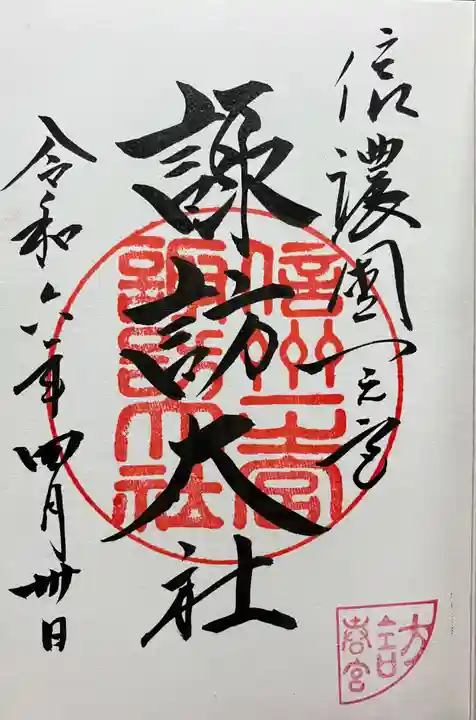 信濃國一之宮
諏訪大社
令和六年四月卅日
信州一宮
諏訪大社
訪
春宮